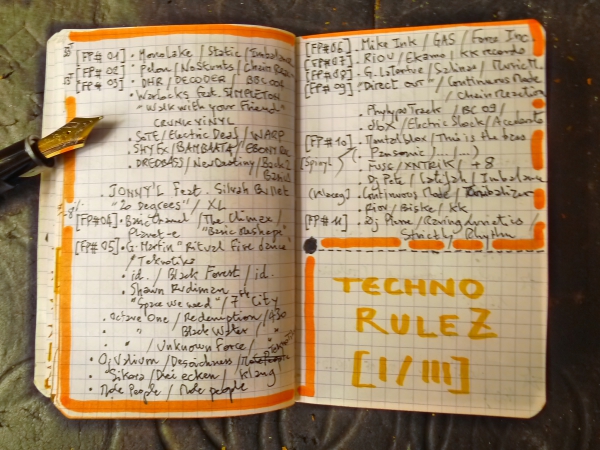 [FP# 01] • Monolake / Static / Imbalance
[FP# 02] • Pelon / No Stunts / Chain Reaction
[FP# 03] • DHR / DECODER / BBC004
• Warlocks feat. SIMPLETON
"Walk with your Friend"
CRUNK VINYL
• SOTE / Electric Deaf / WARP
• SHY EX / BAMBAATA / EBONY Rec
• DREDBASS / New Destiny / Back 2 Basics
JONNY L Feat. Silvah Bullet
"20 Degrees" / XL
[FP#04] • Basic Channel / The Climax /
Planet-e "Basic Reshape"
[FP#05] • G. Martin "Ritual Fire dance"
/ Teknotika
• id. / Black Forest / id.
• Shawn Rudiman
"Space we used" / 7th City
• Octave One / Redemption / 430
• " Black Water / "
" / Unknown Force / "
• DJ Valium / Desaichness /
• Sikora / Drei ecken / Klang
• Mole People / Mole people
[FP#06] • Mike Ink / GAS / Force Inc.
[FP#07] • RIOU / Ekamo / KK records
[FP#08] • G. Latortue / Salinas / Music M
[FP# 09] "Direct out" / Continuous Mode
Chain Reaction
• Phylyps Track / BC 09 /
• dbx / Electric Shock / Accelerate
[FP# 10] • / This is the bass
(Spiny) Pansonic / ... / ...)
• FUSE / XNTRIK / + 8
• Dj Pete / / Imbalance
• Continuous Mode / Imbalance
• Riou / Biske / KK
[FP# 11] • Dj Pierre / Raving Lunatics /
Strictly Rhythm
TECHNO
RULEZ
[I / III]